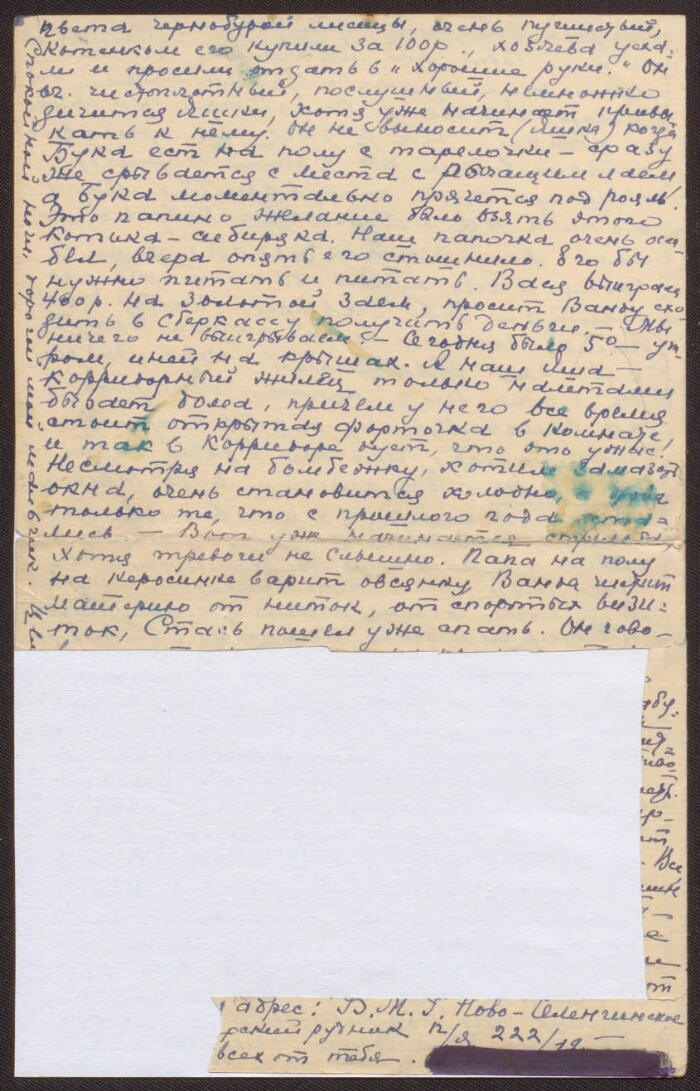 цвета чернобурой лисицы, очень пушистый,
Котенком его купили за 100р., хозяева уеха-
ли и просили отдать в „хорошие руки." Он
оч. чистоплотный, послушный, немножко
дичится Яшки, хотя уже начинает привы-
кать к нему. Он не выносит (Яшка) когда
Бука ест на полу с тарелочки – сразу
же срывается с места с рычащим лаем
а Бука моментально прячется под рояль.
Это папино желание было взять этого
котика – сибиряка. Наш папочка очень осла-
бел, вчера опять его стошнило. Его бы
нужно питать и питать. Вася выиграл
400р. на золотой заем, просит Ванду схо-
дить в Сберкассу получить деньги. – Мы
ничего не выигрываем – Сегодня было 5° – ут-
ром, иней на крышах. А наш
Корридорный жилец только налетами
бывает дома, причем у него все время
стоит открытая форточка в комнате,
и так в корридоре дует, что это ужас.
Несмотря на бомбежку, хотим замазать
окна, очень становится холодно,
только те, что с прошлого года оста-
лись. – Вот уже начинается стрельба,
хотя тревоги не слышно. Папа на полу
на керосинке варит овсянку Ванда чистит
материю от ниток, от споротых визи-
ток, Стась пошел уже спать. Он гово-
Все
адрес: В.М.Г. Ново-
рудник п/я 222/12 –
всех от тебя.
Спокойной ночи, дорогой мой мальчик.